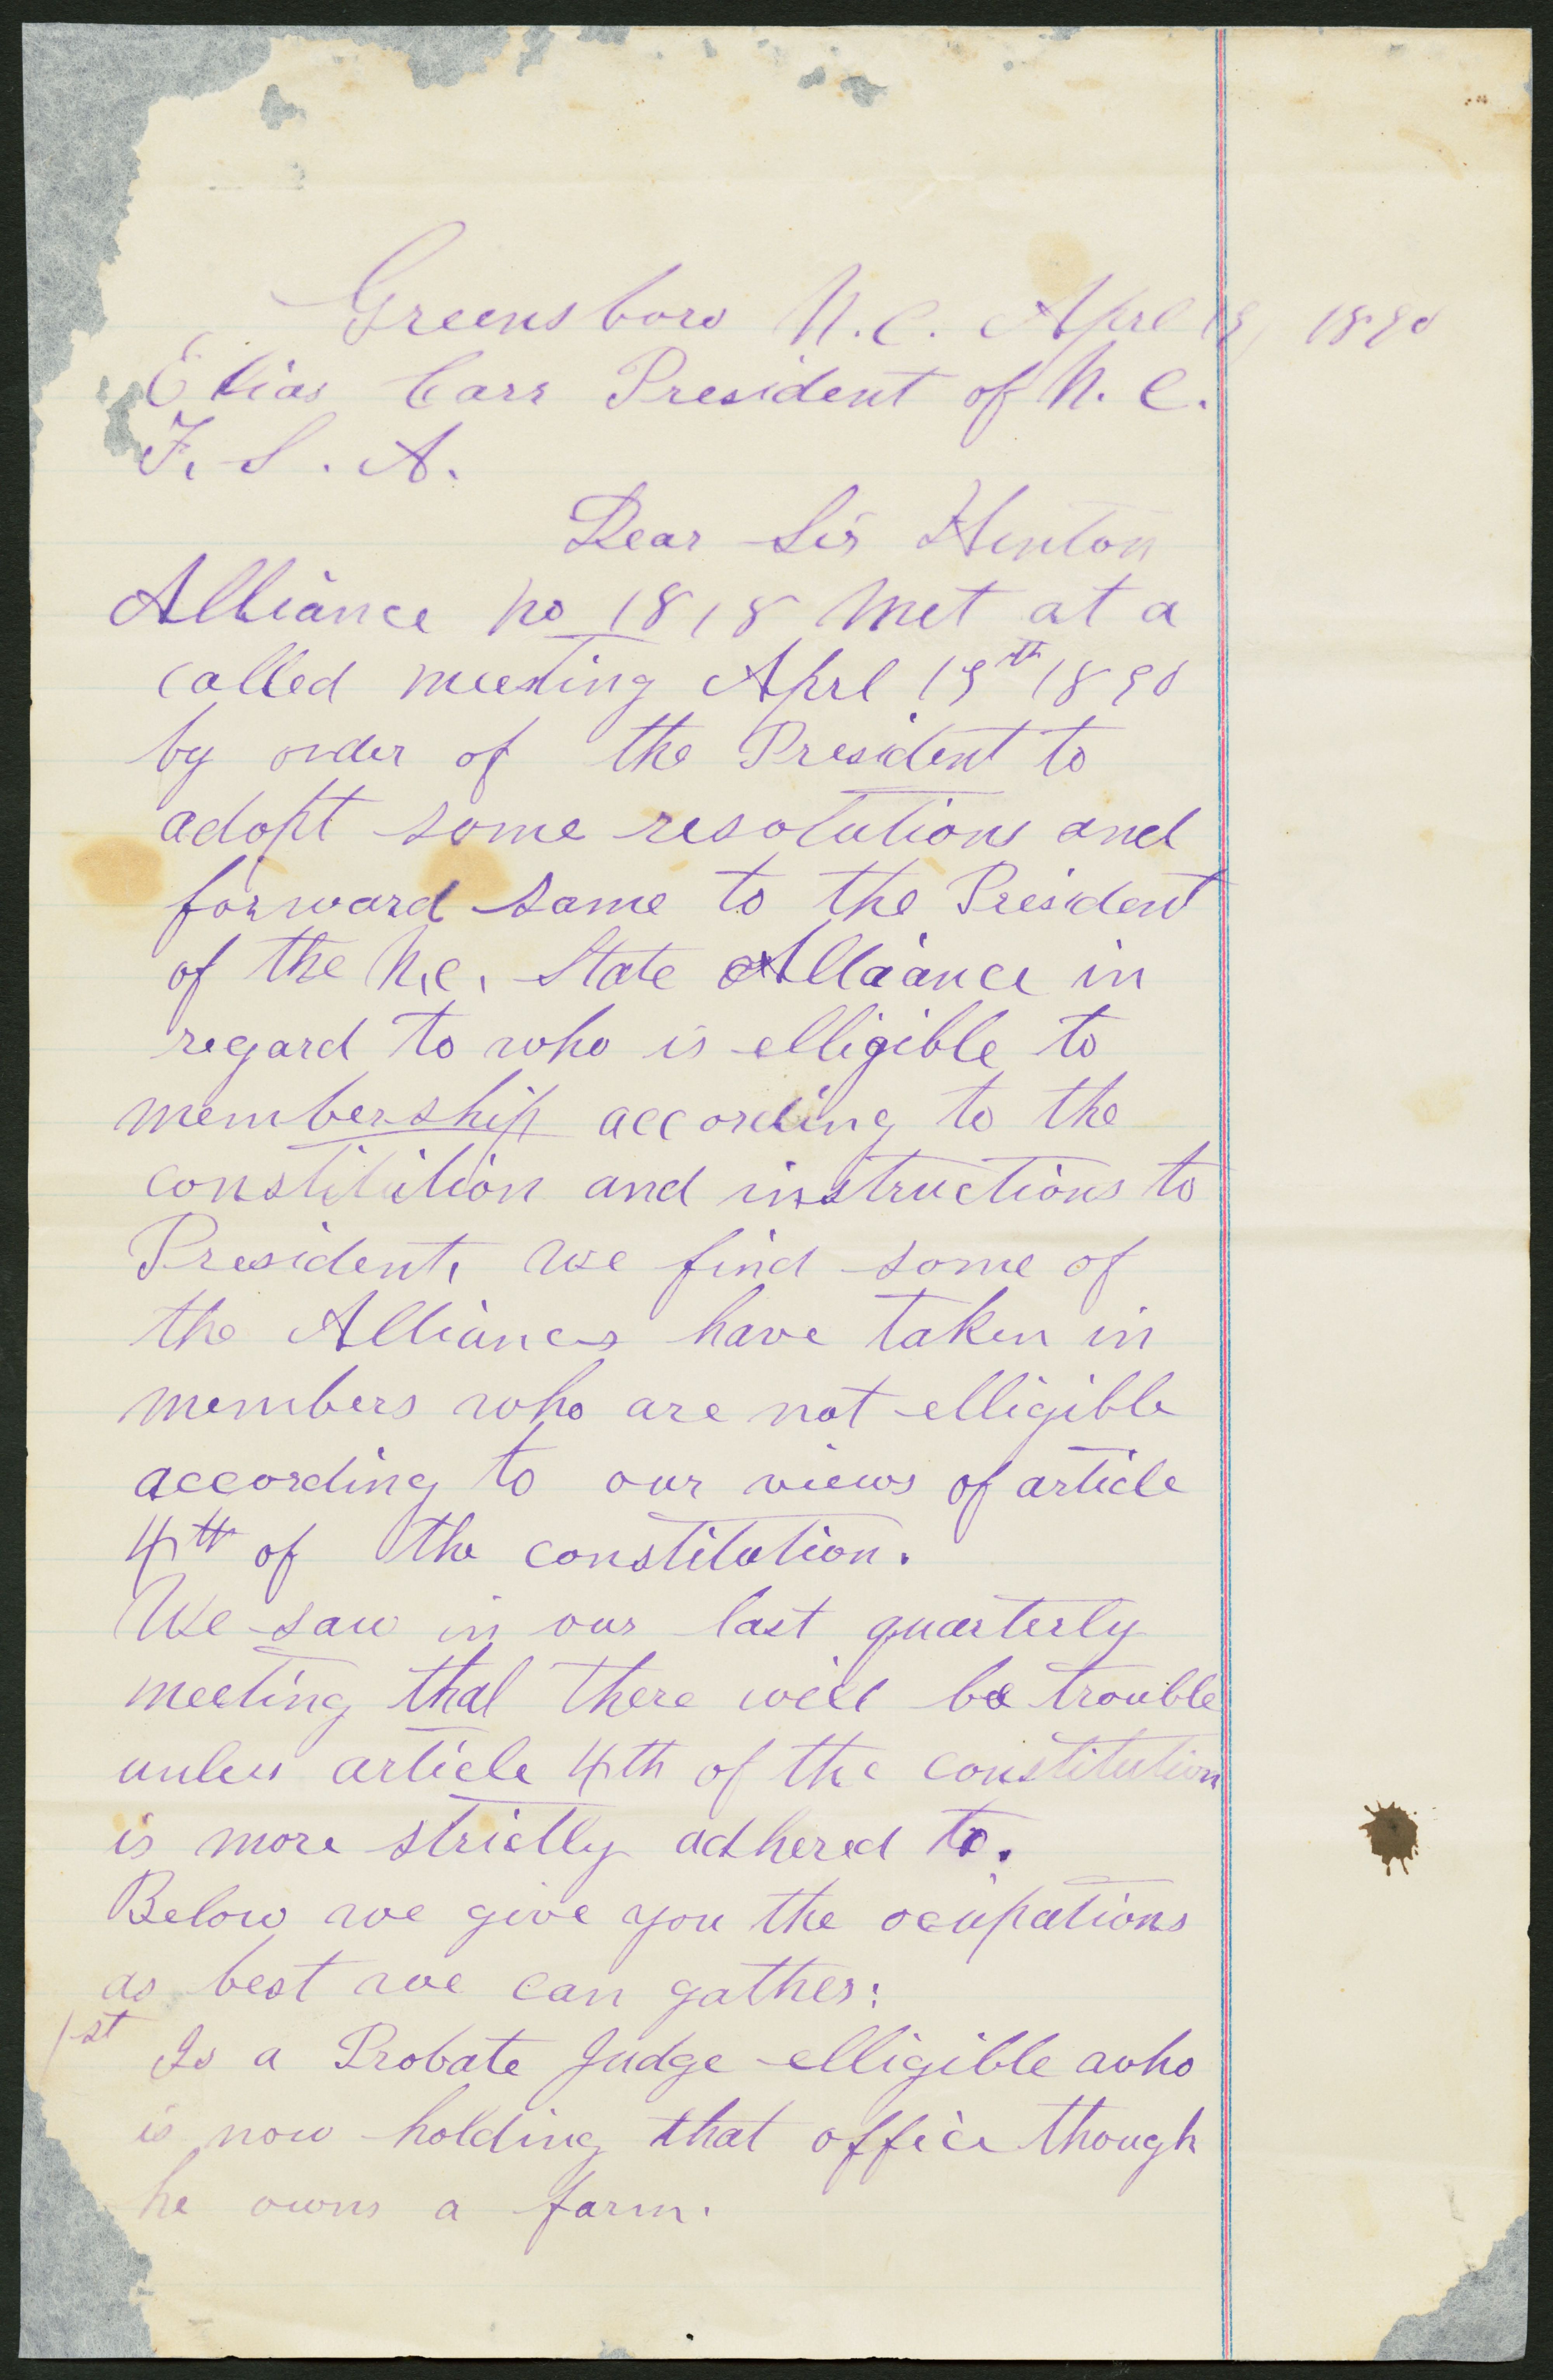 Greensboro N.C. Aprl 19, 1890
Elias Carr President of N.C.
F. S. A.
Dear Sir Hinton
Alliance no 1818 Met at a
called meeting Aprl 19th 1890
by order of the President to
adopt some resolutions and
forward same to the President
of the N.C. State Allaiance in
regard to who is elligible to
membership according to the
constitution and instructions to
President, We find some of
the Alliances have taken in
members who are not elligible
according to our views of article
4th of the constitution.
We saw in our last quarterly
meeting that there will be trouble
unless article 4th of the constitution
is more strictly adhered to.
Below we give you the ocupations
as best we can gather:
1st Is a Probate Judge elligible who
is now holding that office though
he owns a farm.